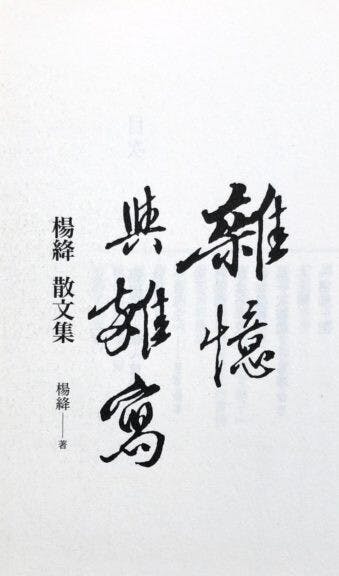 雜憶
與雜寫
楊絳 散文集
楊絳──著